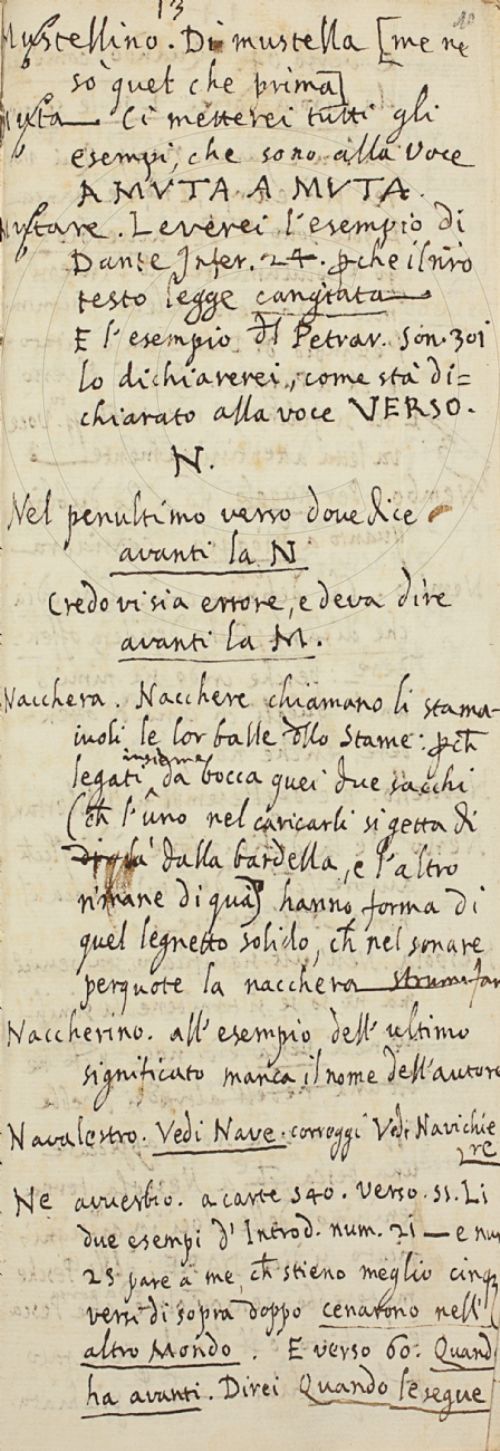 13
10
Mustellino. Di mustella [me ne
so quel che prima]
Muta — Ci metterei tutti gli
esempi, che sono alla voce
A MVTA A MVTA.
Mutare. Leverei l'esempio di
Dante Infer. 24. ꝑche il nr̃o
testo legge cangiata —
E l'esempio dl Petrar. son. 301
lo dichiarerei, come sta di=
chiarato alla voce VERSO.
N.
Nel penultimo verso dove dice
avanti la N
Credo vi sia errore, e deva dire
avanti la M.
Nacchera. Nacchere chiamano li stama-
iuoli le lor balle dllo stame: ꝑch̃
legati insieme da bocca quei due sacchi
(ch̃ l'uno nel caricarli si getta di
là dalla bardella, e l'altro
rimane di quà) hanno forma di
quel legnetto solido, ch̃ nel sonare
perquote la nacchera
Naccherino. all'esempio dell'ultimo
significato manca il nome dell'autore
Navalestro. Vedi Nave. correggi Vedi Navichie
re
Ne avverbio. a carte 540. verso. 55. Li
due esempi d'Introd. num. 21 — e num
25 pare a me, ch̃ stieno meglio cinqȝ
versi di sopra doppo cenarono nell'
altro Mondo. E verso 60: Quand
ha avanti. Direi Quando le segue